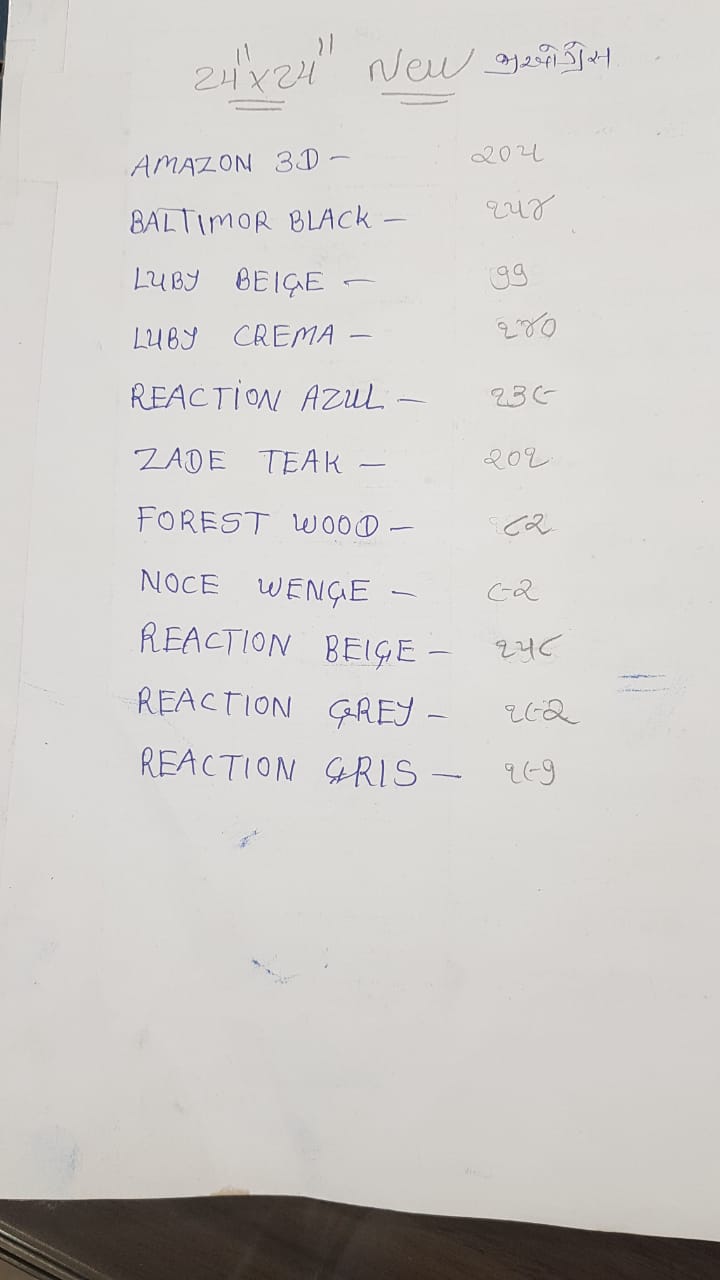 24"x24" New
AMAZON 3D - ૨૦૫
BALTIMOR BLACK - ૧૫૪
LUBY BEIGE - ૭૭
LUBY CREMA - ૧૪૦
REACTION AZUL - ૧૩૯
ZADE TEAK - ૨૦૧
FOREST WOOD - ૮૨
NOCE WENGE - ૯૨
REACTION BEIGE - ૧૫૮
REACTION GREY - ૧૯૨
REACTION GRIS - ૧૯૭